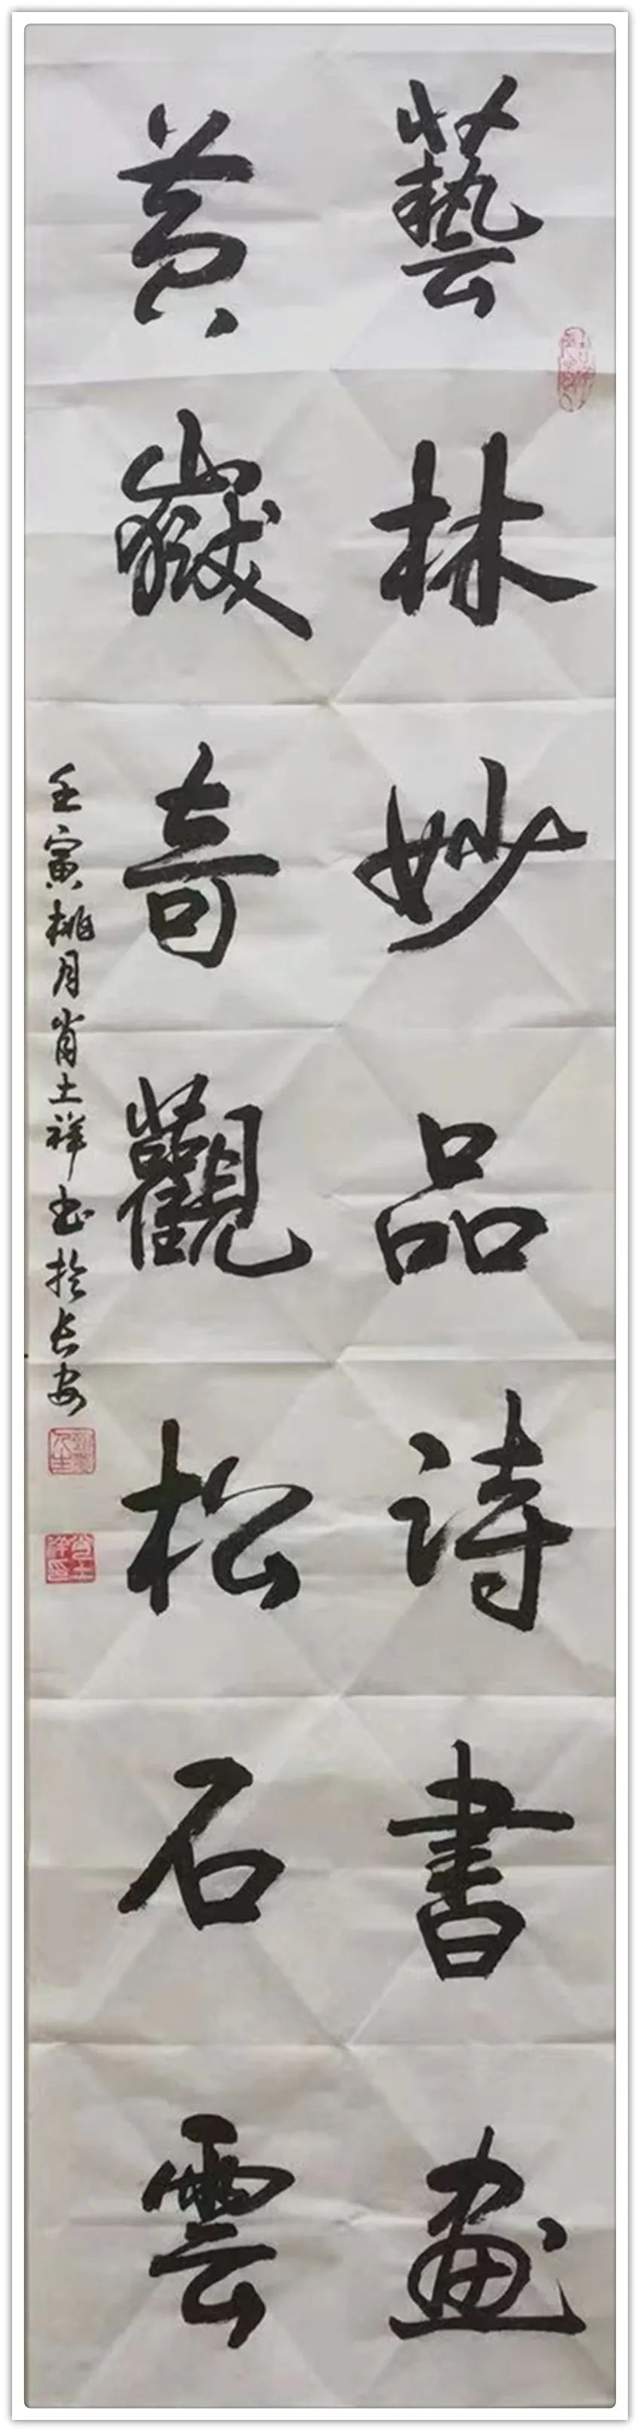 藝林妙品詩書畫
黃嶽奇觀松石雲
壬寅桃月肖土祥书於长安